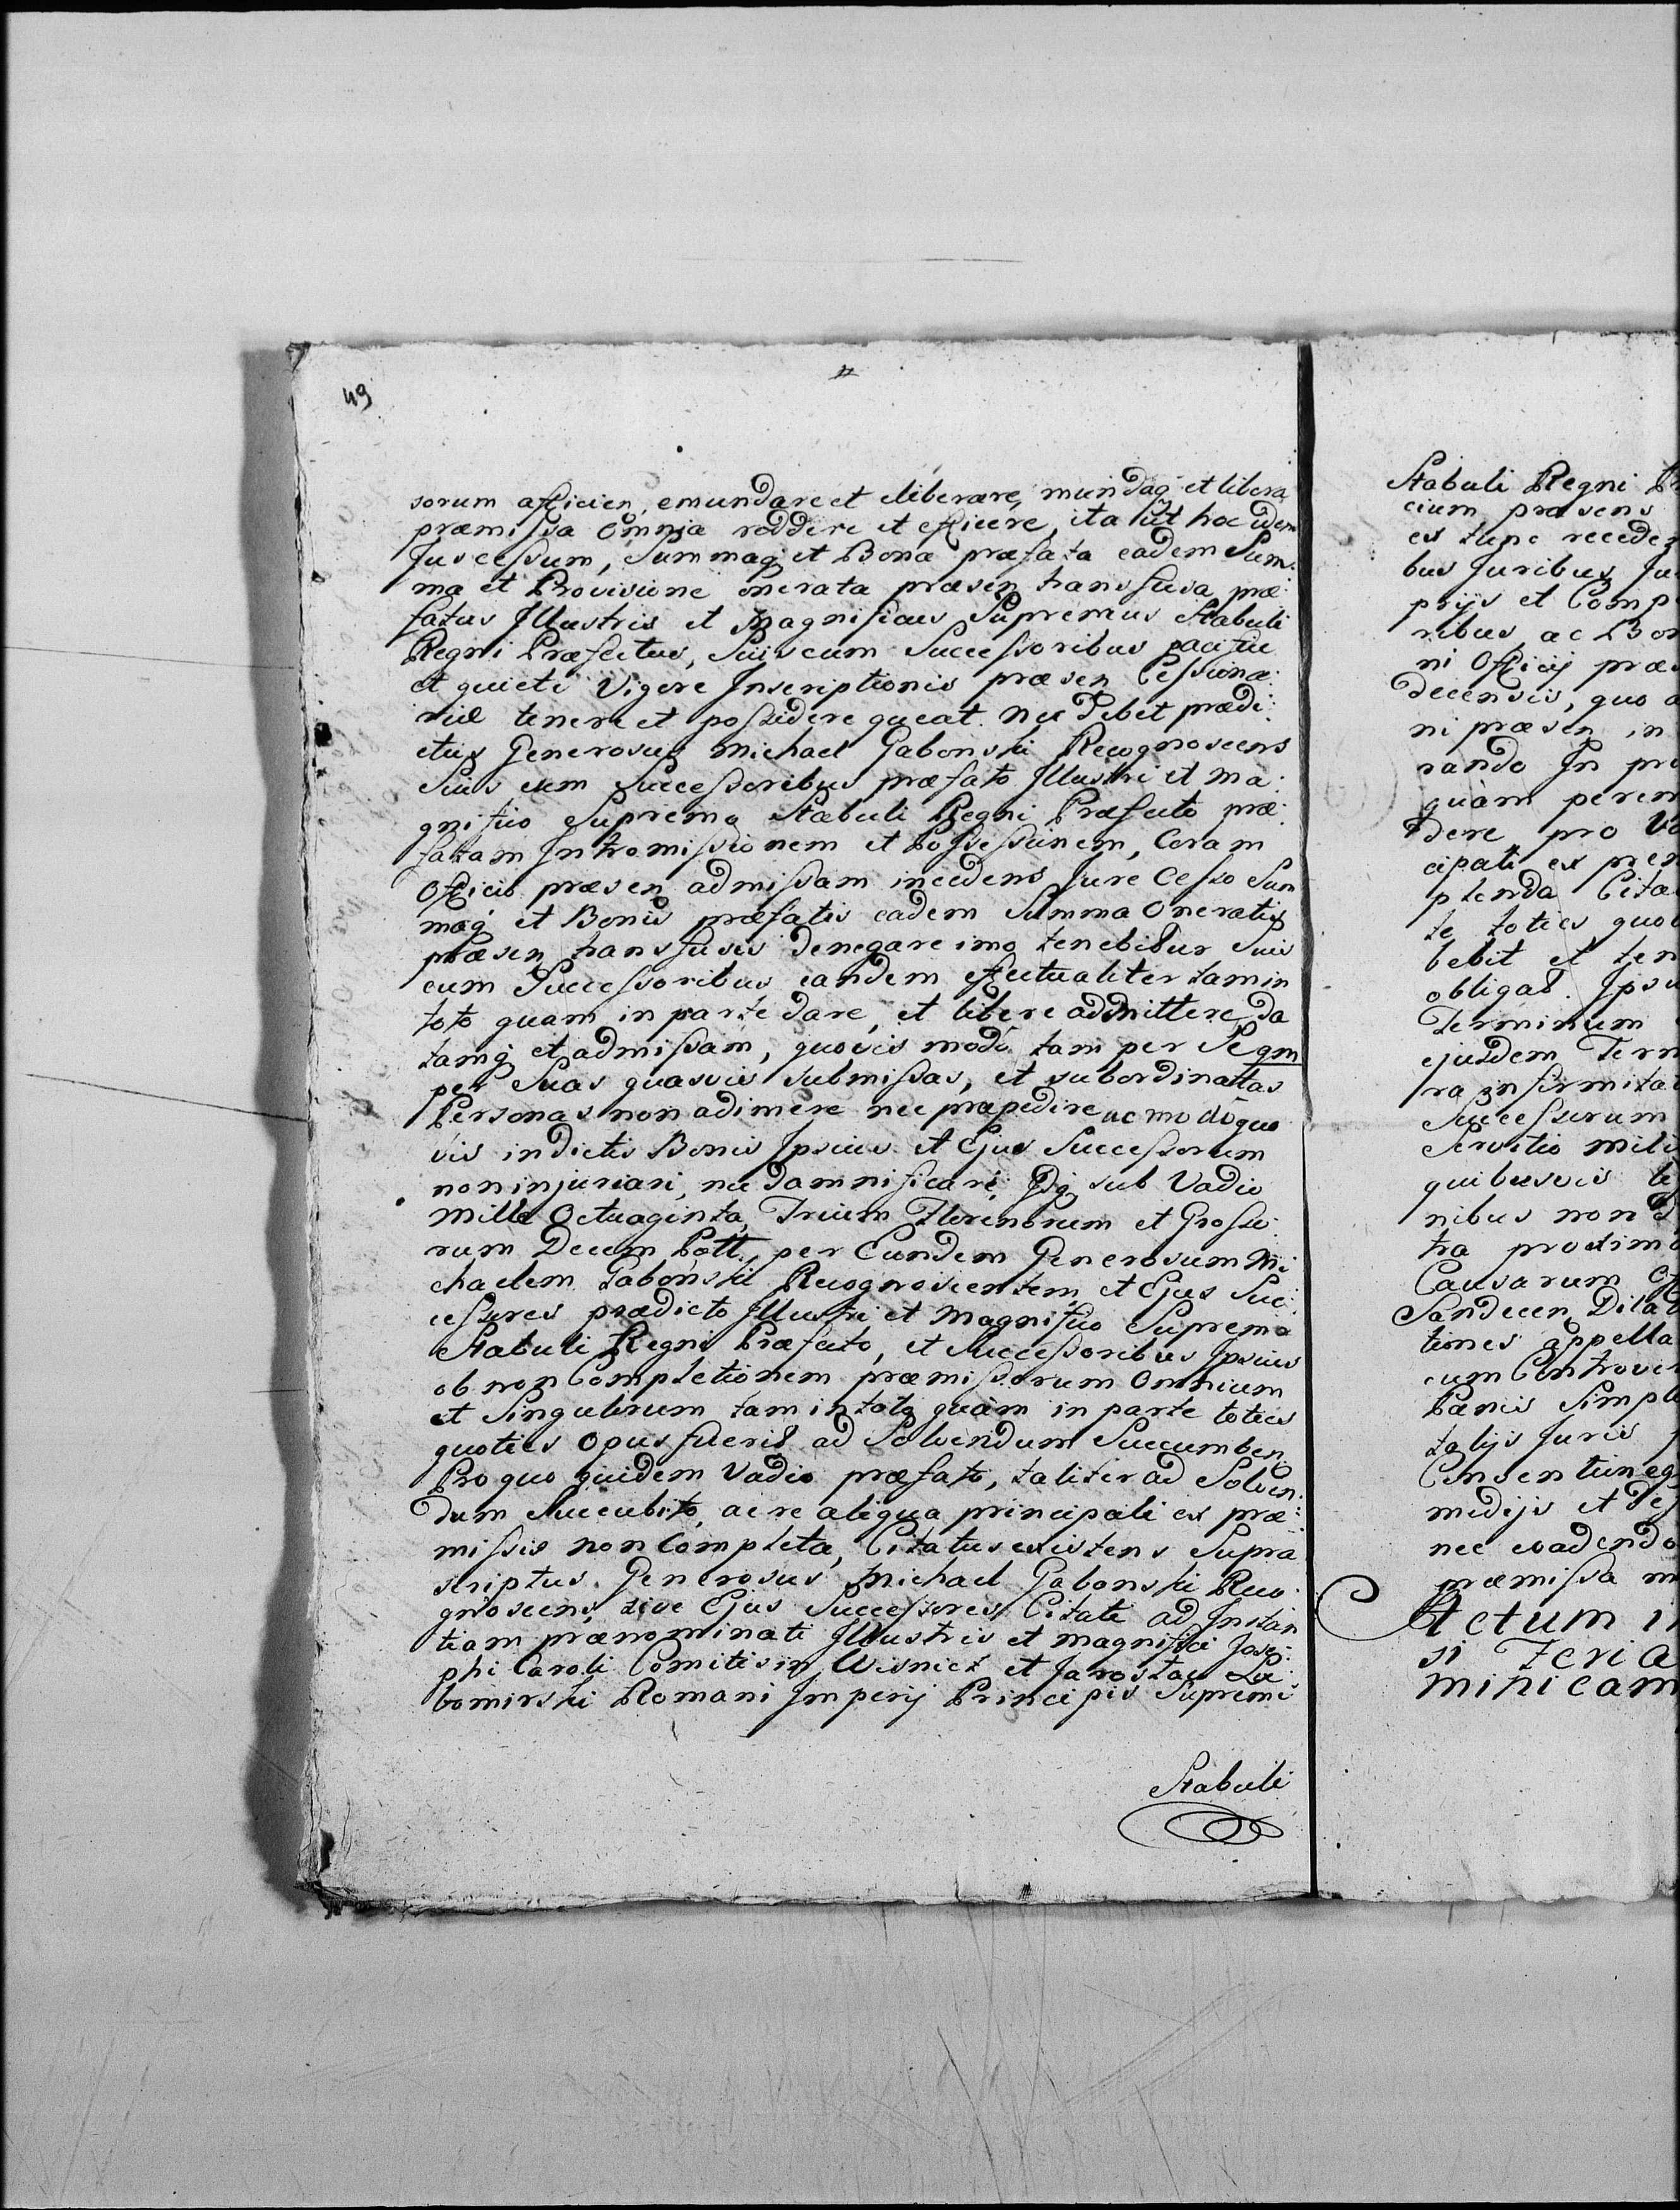 49
sorum afficien, emundare et eliberare, mundaq et libera
præmissa Omnia reddere et efficere, ita ut hoc idem
Jus cessum, Summaq et Bona præfata eadem Sum:
ma et Provisione onerata præsen transfusa præ:
fatus Illustris et Magnificus Supremus Stabuli
Regni Præfectus, Suis cum Successoribus pacifice
et quiete Vigore Inscriptionis præsen Cessiona:
riæ tenere et possidere queat. nec Debet prædi:
ctus Generosus Michael Gabonski Recognoscens
Suis cum Successoribus præfato Illustri et Ma:
gnifico Supremo Stabuli Regni Præfecto præ:
fatam Intromissionem et Possessionem, Coram
Officio præsen admissam incedens Jure Cesso Sum
maq et Bonis præfatis eadem Summa Oneratis
præsen transfusis denegare imo tenebitur Suis
cum Successoribus eandem effectualiter tam in
toto quam in parte dare, et libere admittere, da
tamq et admissam, quovis modo tam per Se qm
per Suas quasvis submissas, et subordinatas
Personas non adimere nec præpedire ac modo quo
vis in dictis Bonis Ipsius et Ejus Successorum
non injuriari, nec damnificari, Idq sub Vadio
Mille Octuaginta Trium Florenorum et Grosso:
rum Decem Pott. per Eundem Generosum Mi
chaelem Gabonski Recognoscentem et Ejus Suc:
cessores prædicto Illustri et Magnifico Supremo
Stabuli Regni Præfecto, et Successoribus Ipsius
ob non Completionem præmissorum Omnium
et Singulorum tam in toto quam in parte toties
quoties Opus fuerit ad Solvendum Succumben
Pro quo quidem Vadio præfato, taliter ad Solven:
dum Succubito, ac re aliqua principali ex præ:
missis non Completa, Citatus existens Supra
scriptus Generosus Michael Gabonski Reco:
gnoscens, sive Ejus Successores Citati ad Instan
tiam prænominati Illustris et Magnifici Jose:
phi Caroli Comitis in Wisnicz et Jaroslaw Lu:
bomirski Romani Imperij Principis Supremi
Stabuli
Stabuli Regni
cium præsens
ex tunc receden
bus Juribus
prijs et Comp
ribus ac Bon
ni Officij præ
decensis, quo a
ni præsen in
rando In pr
quam perem
dere pro Va
cipali ex prem
plenda Cita
te toties quo
bebit et ten
obligat. Ipsu
Terminum
ejusdem Term
ra infirmitat
Successorum
Servitio mili
quibusvis le
nibus non
tra proxim
Causarum Off
Sandecen Dilat
tiones appella
cum Controver
Pœnis Simpl
talijs Juris
Consentioneq
medijs et
nec evadendo
præmissa m
Actum i
si Feria
minicam